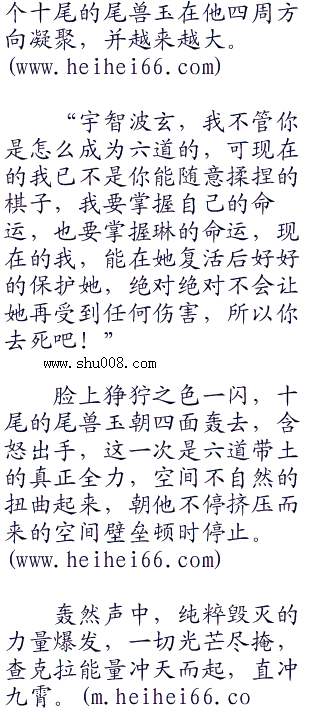 个十尾的尾兽玉在他四周方
向凝聚，并越来越大。
(www.heihei66.com)
“宇智波玄，我不管你
是怎么成为六道的，可现在
的我已不是你能随意揉捏的
棋子，我要掌握自己的命
运，也要掌握琳的命运，现
在的我，能在她复活后好好
的保护她，绝对绝对不会让
她再受到任何伤害，所以你
去死吧！”
www.shu008.com
脸上狰狞之色一闪，十
尾的尾兽玉朝四面轰去，含
怒出手，这一次是六道带土
的真正全力，空间不自然的
扭曲起来，朝他不停挤压而
来的空间壁垒顿时停止。
(www.heihei66.com)
轰然声中，纯粹毁灭的
力量爆发，一切光芒尽掩，
查克拉能量冲天而起，直冲
九霄。(m.heihei66.co